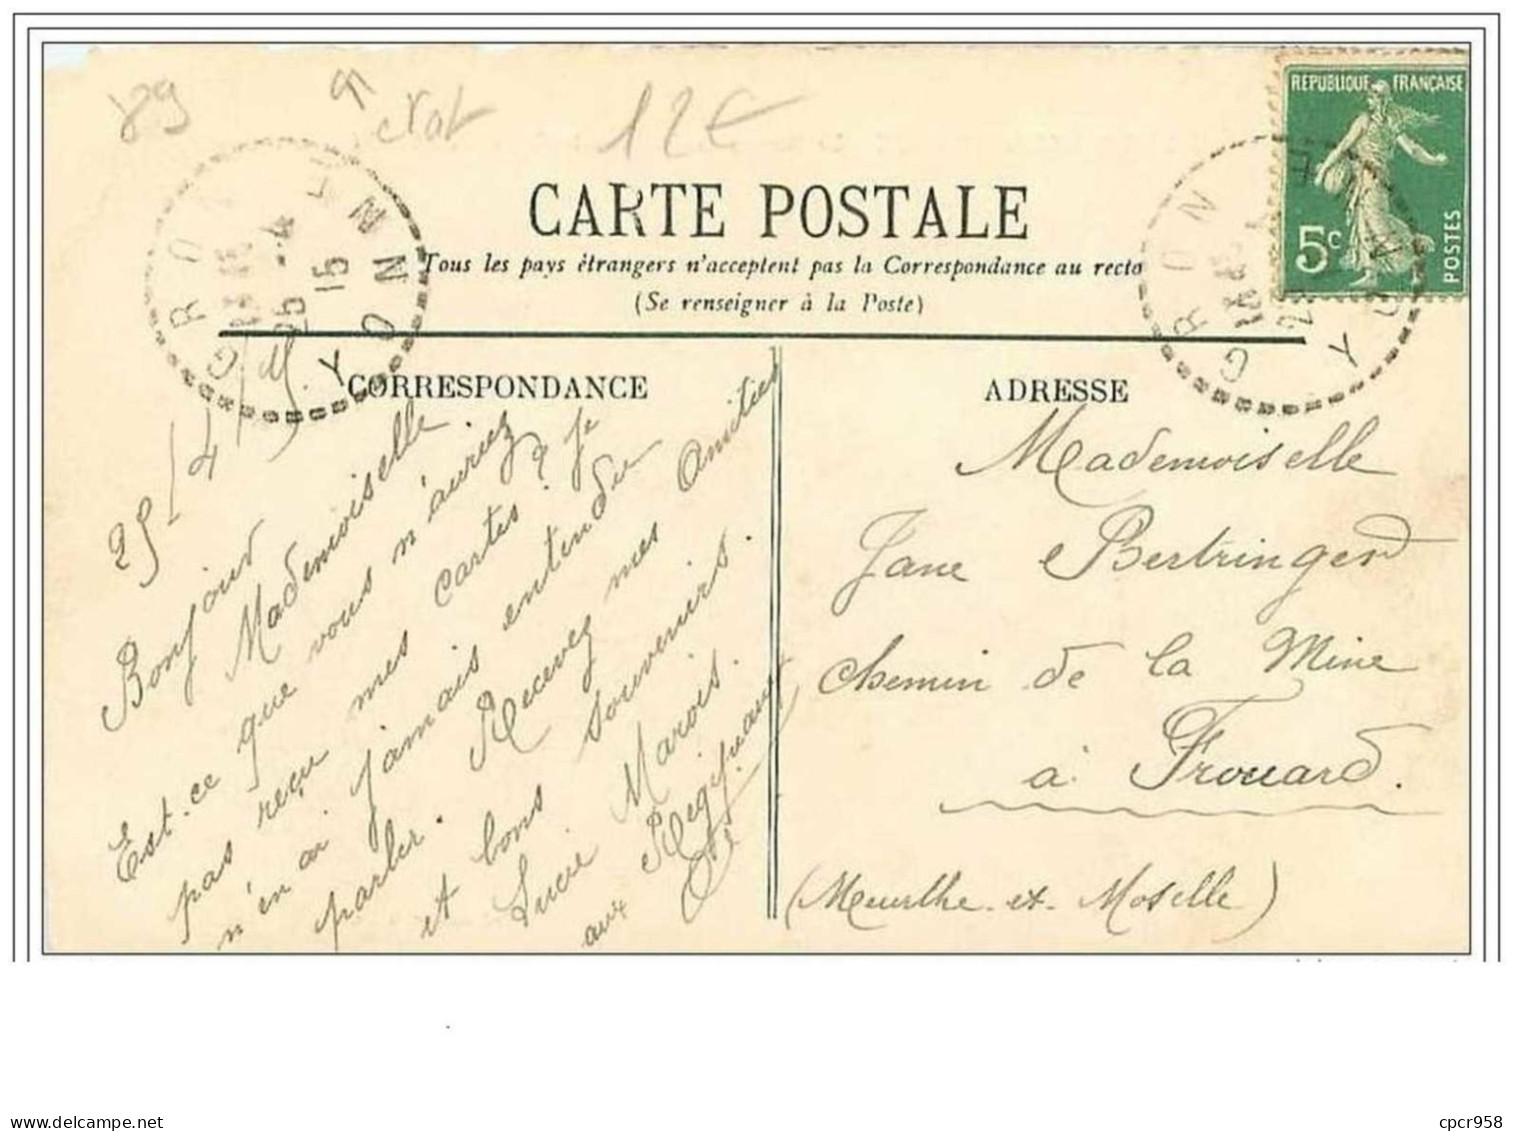 89
12€
CARTE POSTALE
Tous les pays étrangers n'acceptent pas la Correspondance au recto
(Se renseigner à la Poste)
REPUBLIQUE FRANÇAISE
5c
POSTES
GRON
YONNE
25 -4
15
GRON
CORRESPONDANCE
25/4/15
Bonjour
Mademoiselle.
Est-ce que vous n'auriez
pas reçu mes cartes? Je
n'en ai jamais entendu
parler. Recevez mes Amitiés
et bons souvenirs.
Lucie Marois.
aux
ADRESSE
Mademoiselle
Jane Bertringer
Chemin de la Mine
à Frouard.
(Meurthe-et-Moselle)
cpcr958